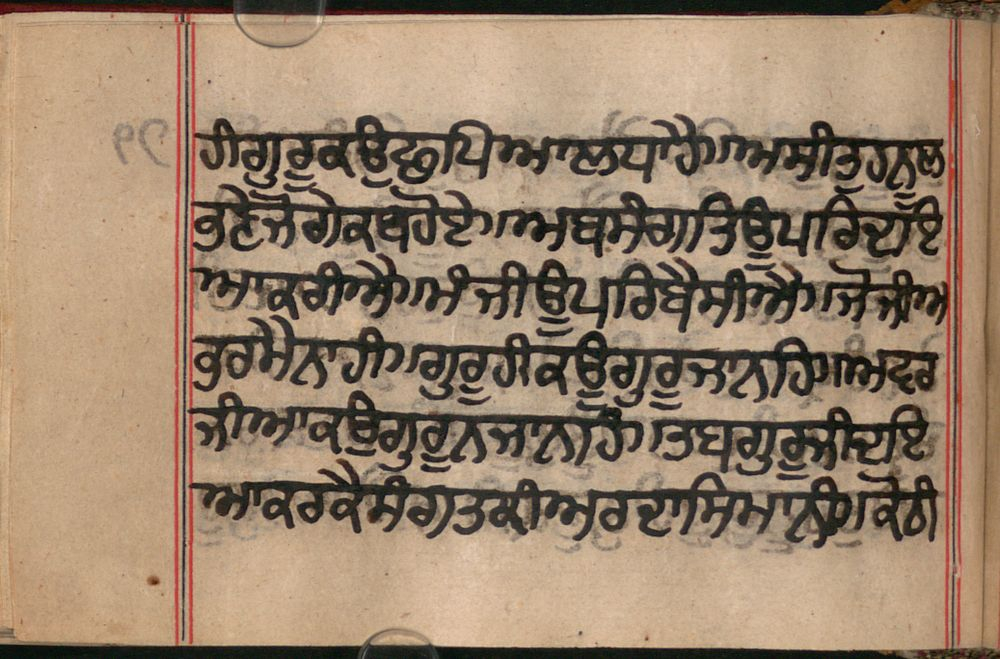 ਹੀਗੁਰੂਕਉਛਪਿਆਲਧਾਹੈ॥ਅਸੀਤੁਹਨੂਲ
ਭਣੇਜੋਗੇਕਬਹੋਏ॥ਅਬਸੰਗਤਿਊਪਰਿਦਇ
ਆਕਰੀਐ॥ਮੰਜੀਊਪਰਿਬੈਸੀਐ॥ਜੋਜੀਅ
ਭੁਰਮੈਨਾਹੀ॥ਗੁਰੂਹੀਕਉਗੁਰੂਜਾਨਹਿ॥ਅਵਰ
ਜੀਆਕਉਗੁਰੂਨਜਾਨਹਿ॥ਤਬਗੁਰੂਜੀਦਇ
ਆਕਰਕੈਸੰਗਤਕੀਅਰਦਾਸਿਮਾਨੀ॥ਕੋਠੀ